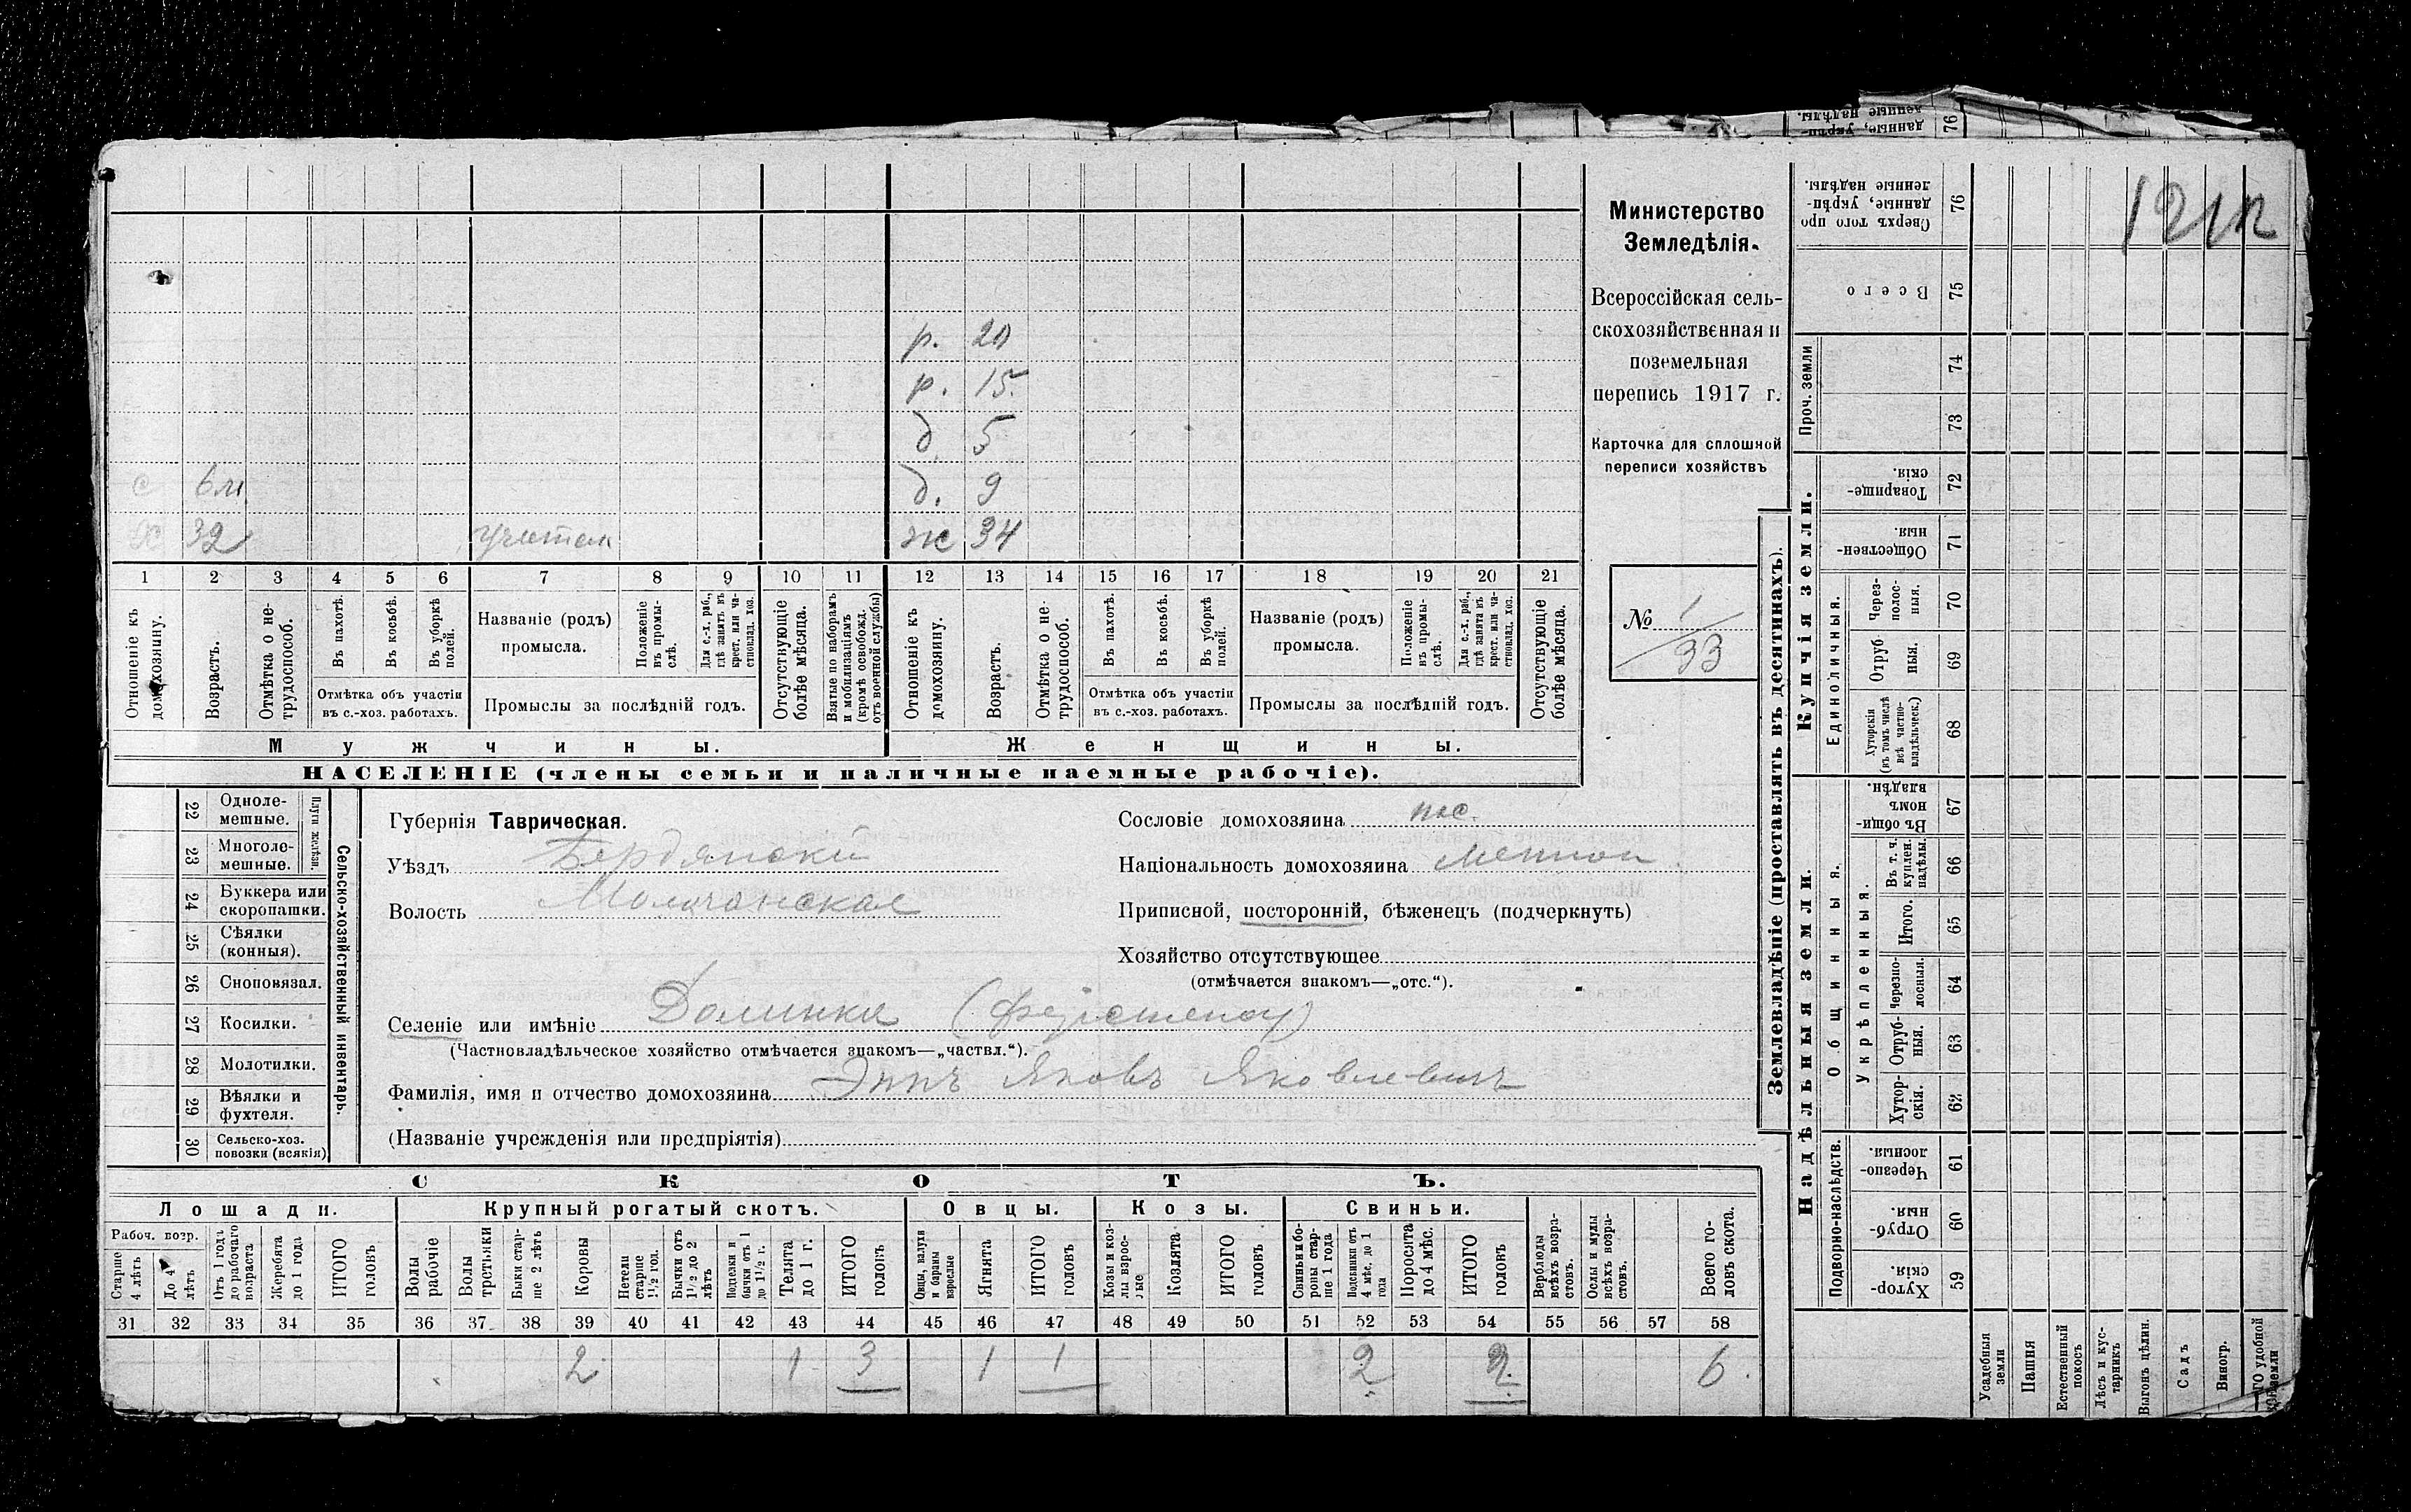 данныя, укрѣп-
ленные надѣлы.
76
р. 20
р. 15.
д 5
д. 9
с 6м.
х 32 учитель
ж 34
1 2 3 4 5 6 7 8 9 10 11 12 13 14 15 16 17 18 19 20 21
Отношеніе къ домохозяину.
Возрастъ.
Отмѣтка о не-трудоспособ.
Въ пахотѣ.
Въ косьбѣ.
Въ уборкѣ полей.
Отмѣтка объ участіи
въ с.-хоз. работахъ.
Названіе (родъ)
промысла.
Положеніе въ промы-слѣ.
Для с.-х. раб., гдѣ занятъ въ крест. или ча-стновлад. хоз.
Промыслы за послѣдній годъ.
Отсутствующіе болѣе мѣсяца.
Взятые по наборамъ и мобилизаціямъ (кромѣ освобожд. отъ военной службы)
Отношеніе къ домохозяину.
Возрастъ.
Отмѣтка о не-трудоспособ.
Въ пахотѣ.
Въ косьбѣ.
Въ уборкѣ полей.
Отмѣтка объ участіи
въ с.-хоз. работахъ.
Названіе (родъ)
промысла.
Положеніе въ промы-слѣ.
Для с.-х. раб., гдѣ занята въ крест. или ча-стновлад. хоз.
Промыслы за послѣдній годъ.
Отсутствующіе болѣе мѣсяца.
Мужчины.
Женщины.
НАСЕЛЕНІЕ (члены семьи и наличные наемные рабочіе).
Министерство
Земледѣлія.
Всероссійская сель-
скохозяйственная и
поземельная
перепись 1917 г.
Карточка для сплошной
переписи хозяйствъ
№ 1/33
22 Одноле-мешные.
23 Многоле-мешные.
Плуги желѣзн.
24 Буккера или скоропашки.
25 Сѣялки (конныя).
26 Сноповязал.
27 Косилки.
28 Молотилки.
29 Вѣялки и фухтеля.
30 Сельско-хоз. повозки (всякія)
Сельско-хозяйственный инвентарь.
Губернія Таврическая.
Уѣздъ Бердянский
Волость Молочанская
Селеніе или имѣніе Долинка
(Частновладѣльческое хозяйство отмѣчается знакомъ—„частвл.“).
Фамилія, имя и отчество домохозяина Эппъ Яковъ Яковлевичъ
(Названіе учрежденія или предпріятія)
Сословіе домохозяина пос.
Національность домохозяина Меннон.
Приписной, посторонній, бѣженецъ (подчеркнуть)
Хозяйство отсутствующее
(отмѣчается знакомъ—„отс.“).
СКОТЪ.
Лошади.
Крупный рогатый скотъ.
Овцы.
Козы.
Свиньи.
Рабоч. возр.
Старше 4 лѣтъ
До 4 лѣтъ
Отъ 1 года до рабочаго возраста
Жеребята до 1 года
ИТОГО головъ
Волы рабочіе
Волы третьяки
Быки стар-ше 2 лѣтъ
Коровы
Нетели старше 1½ год.
Бычки отъ 1½ до 2 лѣтъ
Подтелки и бычки отъ 1 до 1½ г.
Телята до 1 г.
ИТОГО головъ
Овцы, валухи и бараны взрослые
Ягнята
ИТОГО головъ
Козы и коз-лы взрос-лые
Козлята
ИТОГО головъ
Свиньи и бо-ровы стар-ше 1 года
Подсвинки отъ 4 мѣс. до 1 года
Поросята до 4 мѣс.
ИТОГО головъ
Верблюды всѣхъ возра-стовъ.
Ослы и мулы всѣхъ возра-стовъ.
Всего го-ловъ скота.
31 32 33 34 35 36 37 38 39 40 41 42 43 44 45 46 47 48 49 50 51 52 53 54 55 56 57 58
2 1 3 1 1 2 2 6
Землевладѣніе (проставлять въ десятинахъ).
Купчія земли.
Надѣльныя земли.
Сверхъ того про
данные, укрѣп-
ленные надѣлы.
76
Всего
75
Проч. земли
74
73
Товарище-скія.
72
Обществен-ныя
71
Единоличныя.
Через-полос-ныя.
70
Отруб ныя.
69
Хуторскія (въ томъ числѣ всѣ частно-владѣльческ.)
68
Общинныя.
Въ общи-номъ владѣн.
67
Укрѣпленныя.
Въ т. ч. куплен. надѣлы.
66
Итого.
65
Черезпо-лосныя.
64
Отруб-ныя.
63
Хутор-скія.
62
Подворно-наслѣдств.
Черезпо-лосныя.
61
Отруб-ныя
60
Хутор-скія.
59
Усадебныя земли
Пашня
Естественный покосъ
Лѣсъ и кус-тарникъ
Выгонъ цѣлин.
Садъ
Виногр.
удобной земли